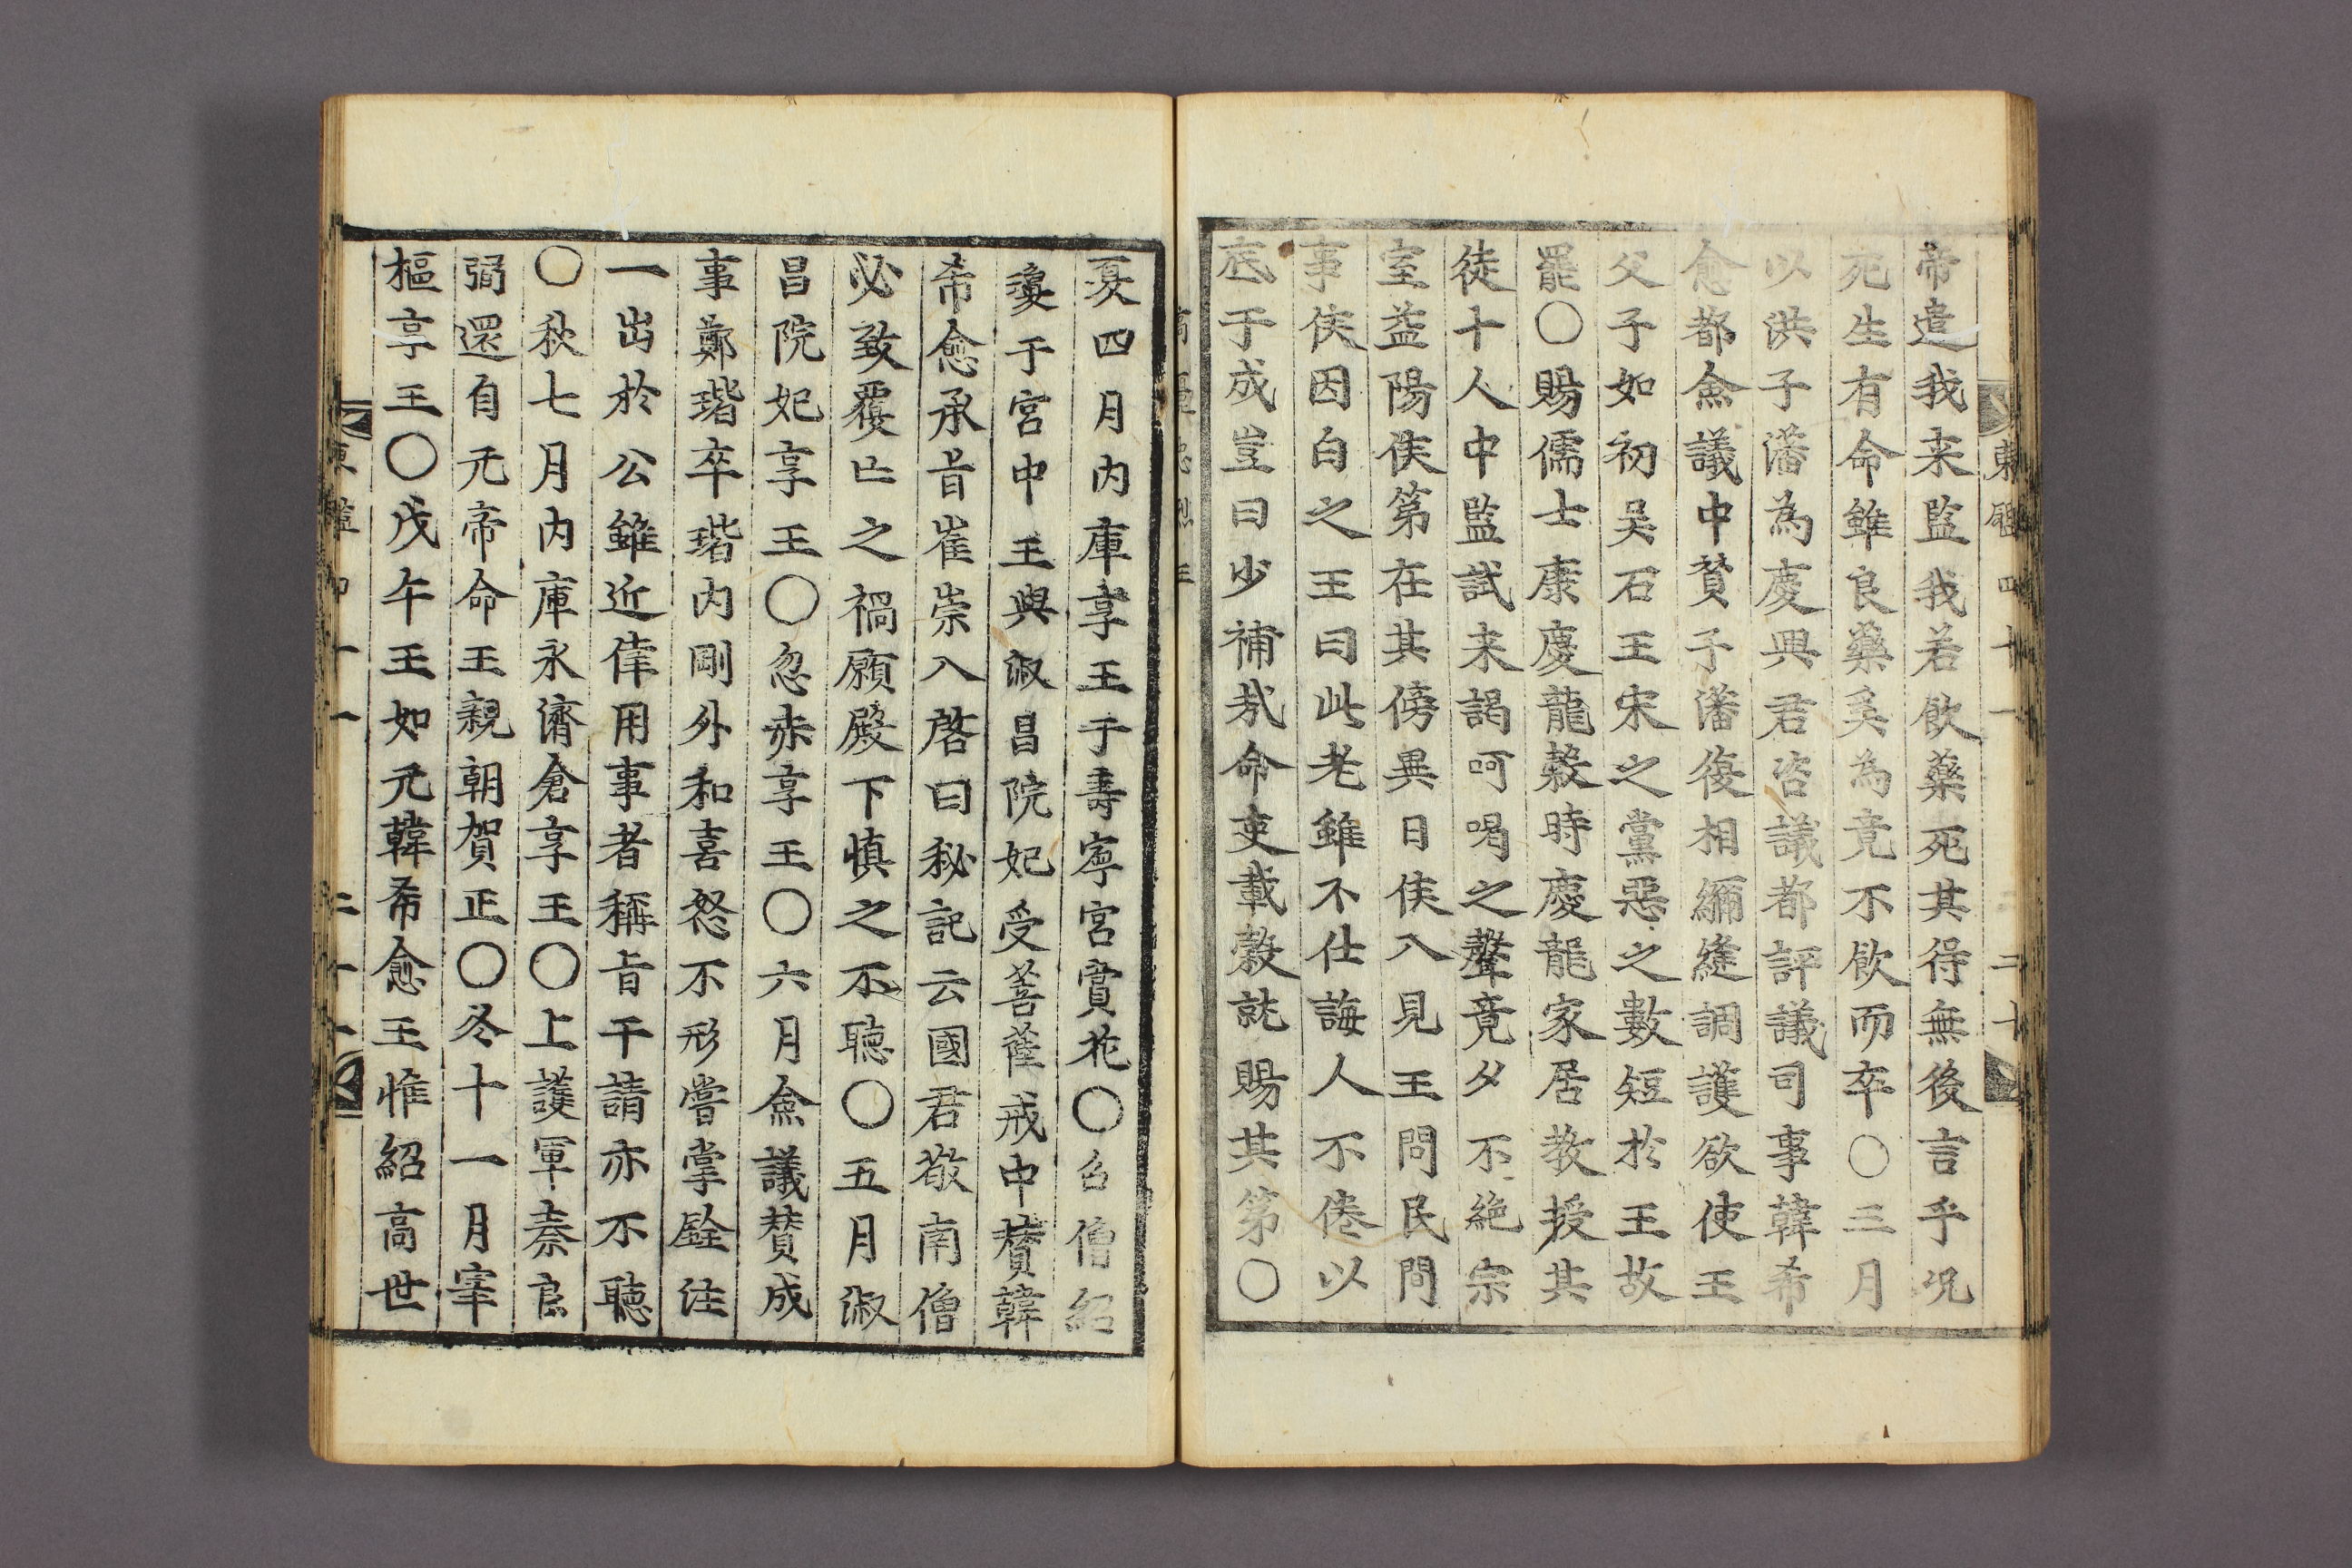 東鑑四十一 二十
帝遣我来監我若飮藥死其得無後言乎况
死生有命雖良藥奚為竟不飮而卒〇三月
以洪子潘為慶興君咨議都評議司事韓希
愈都僉議中賛子潘復相繃縫調護欲使王
父子如初吴石王宋之黨惡之數短於王故
罷〇賜儒士康慶龍糓時慶龍家居教授其
徒十人中監試来謁呵喝之聲竟夕不絶宗
室益陽侯第在其傍異日侯入見王問民間
事侯因白之王曰此老雖不仕誨人不倦以
底于成豈曰少補㢤命吏載糓就賜其第〇
夏四月内庫享王于壽寧宮賞花〇召僧紹
瓊于宮中王與淑昌院妃受菩薩戒中賛韓
希愈承旨崔崇入啓曰秘記云國君敬南僧
必致覆亡之禍願殿下愼之不聴〇五月淑
昌院妃享王〇忽赤享王〇六月僉議賛成
事鄭瑎卒瑎内剛外和喜怒不形嘗掌銓注
一出於公雖近倖用事者稱旨干請亦不聽
〇秋七月内庫永濟倉享王〇上護軍秦良
弼還自元帝命王親朝賀正〇冬十一月宰
樞享王〇戊午王如元韓希愈王惟紹高世